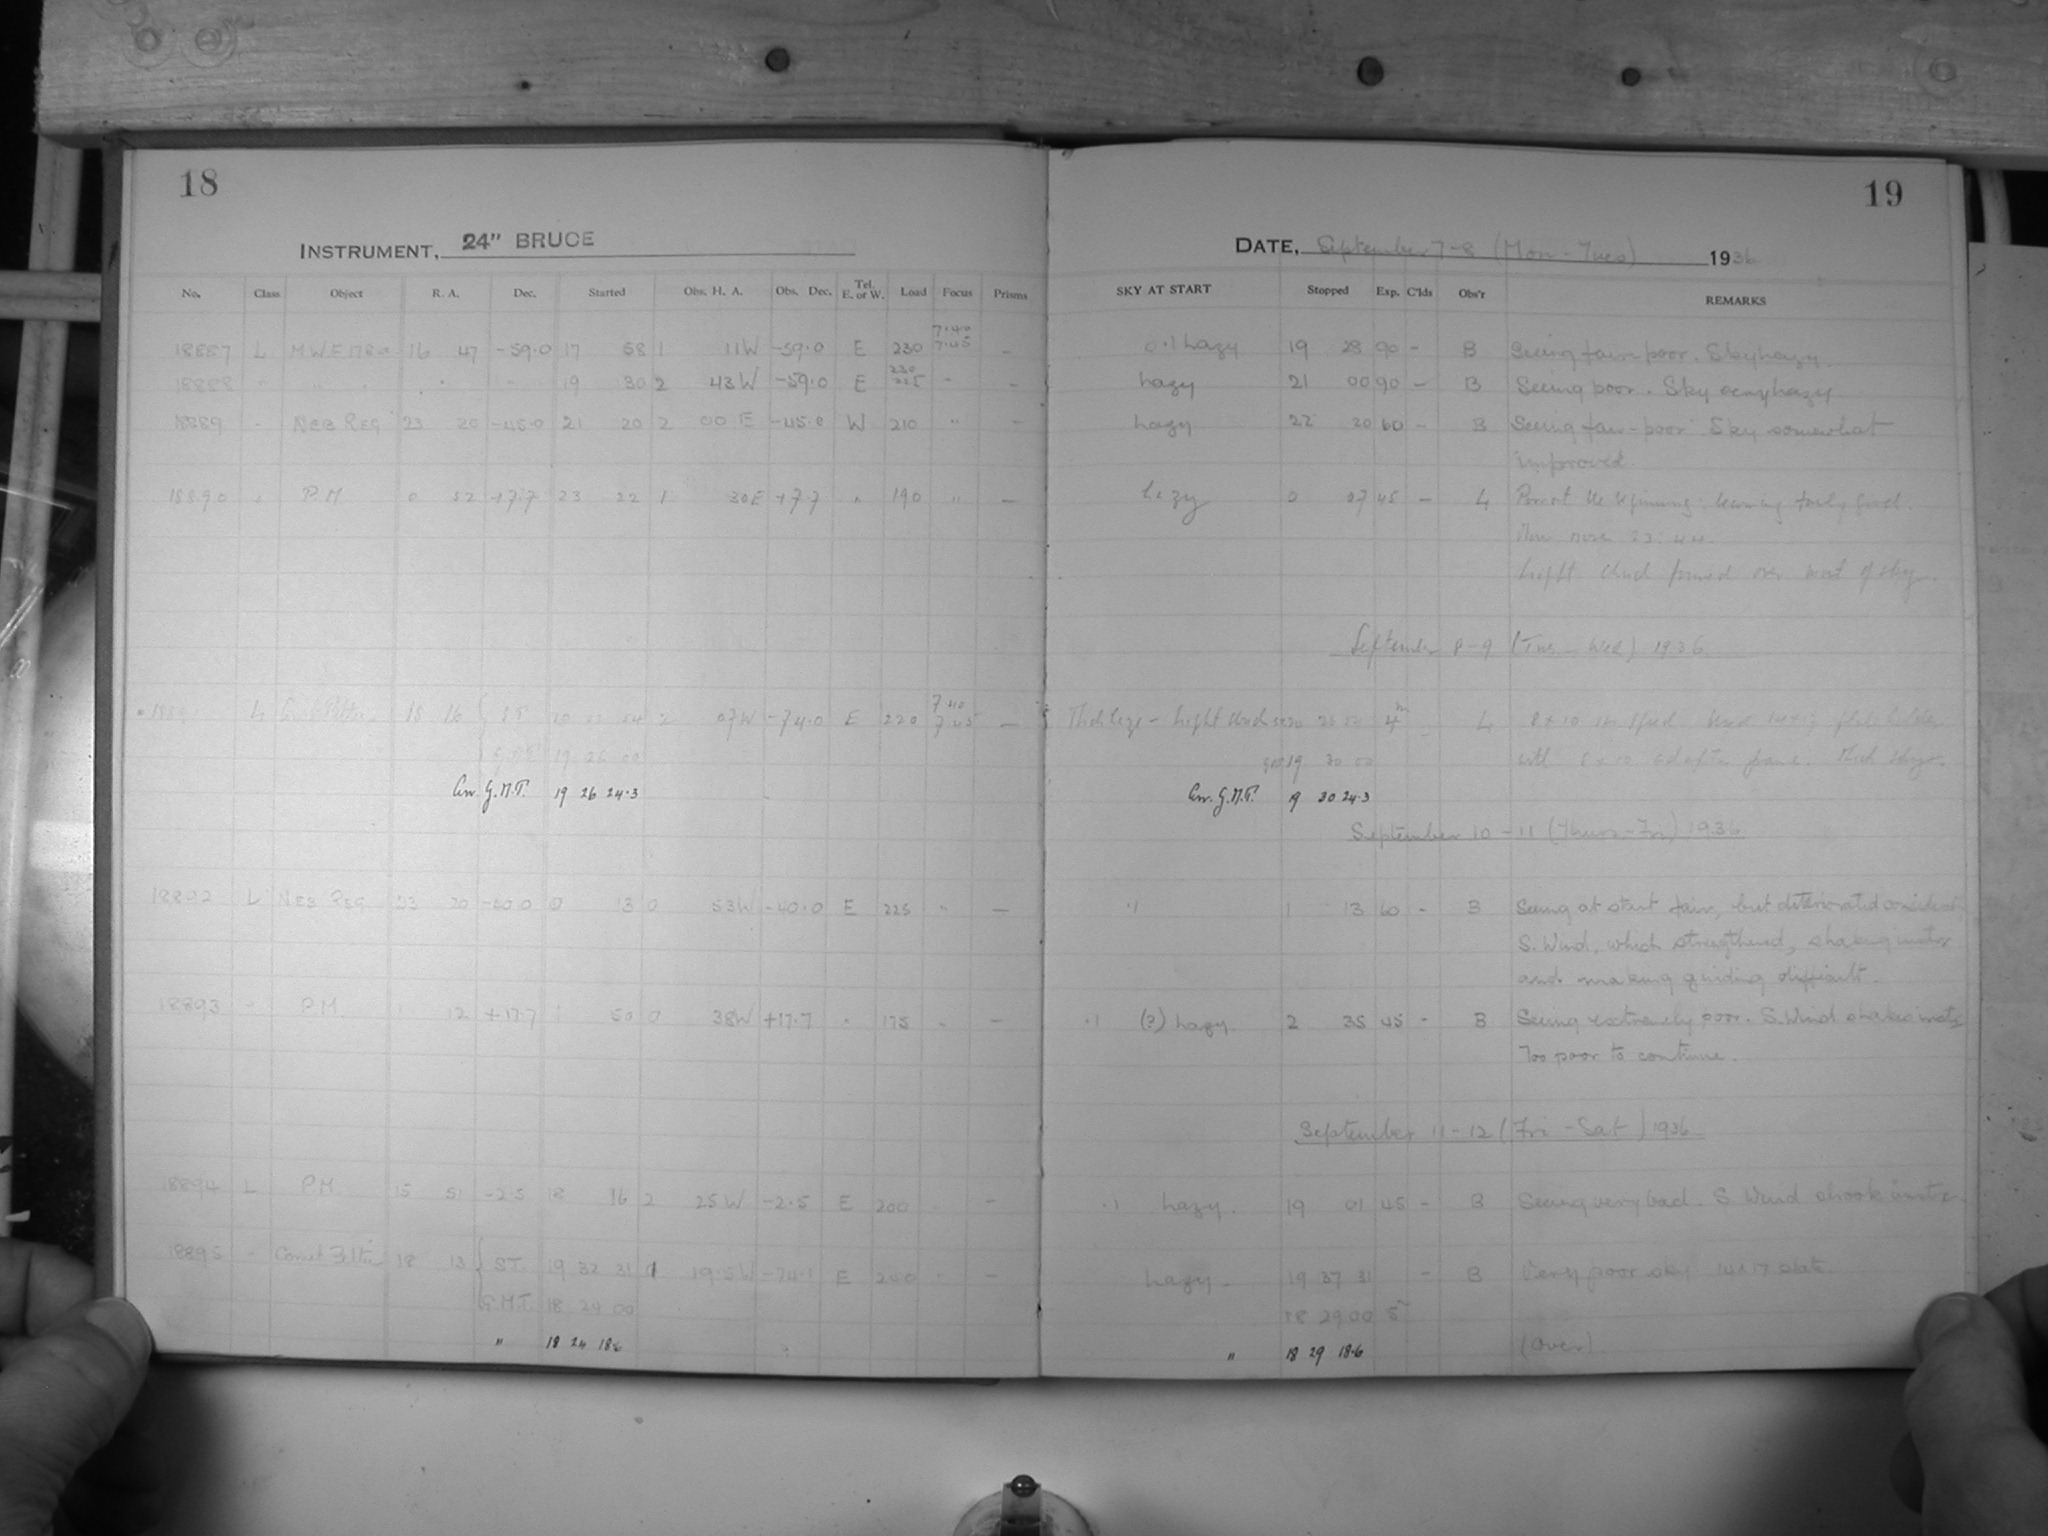 18
INSTRUMENT, 24" BRUCE
No. Class Object R. A. Dec. Started Obs. H. A. Obs. Dec. Tel. E. or W. Load Focus Prisms
7.40
18887 L MWF 178a 16 47 -59.0 17 58 1 11W -59.0 E 230 7.45 -
230
18888 " " " " " 19 30 2 43W -59.0 E 225 " -
18889 " NEB REG 23 20 -45.0 21 20 2 00 E -45.0 W 210 " -
18890 " P.M. 0 52 +7.7 23 22 1 30E +7.7 " 190 " -
7.40
L 18 16 S.T. 2 07W -74.0 E 220 7.45 -
G.M.T. 19 26 00
Corr. G.M.T. 19 26 24.3
18892 L NEB REG 23 20 0 13 0 53W -40.0 E 225 " -
18893 " P.M. 1 12 +17.7 1 50 0 38W +17.7 " 175 " -
18894 L P.M. 15 51 -2.5 18 16 2 25W -2.5 E 200 " -
18895 " Comet 18 13 S.T. 19 32 31 1 19.5W -74.1 E 240 " -
G.M.T. 18 24 00
" 18 24 18.6
19
DATE, September 7-8 (Mon-Tues) 1936
SKY AT START Stopped Exp. C'lds Obs'r REMARKS
0.1 hazy 19 28 90 - B Seeing fair-poor. Sky hazy.
hazy 21 00 90 - B Seeing poor. Sky very hazy.
hazy 22 20 60 - B Seeing fair-poor. Sky somewhat
improved.
hazy 0 07 45 - L Poor at the beginning: becoming fairly good.
Moon rose 23:44.
Light cloud formed over most of sky.
September 8-9 (Tues-Wed) 1936
Thick haze - light cloud 4m L 8x10
GMT 19 30 00 with 8x10 adapter frame. Thick
Corr. G.M.T. 19 30 24.3
September 10-11 (Thurs-Fri) 1936
.1 1 13 60 - B Seeing at start fair, but deteriorated
S. Wind, which strengthened, shaking instr
and making guiding difficult.
.1 (?) hazy. 2 35 45 - B Seeing extremely poor. S. Wind shakes instr.
Too poor to continue.
September 11-12 (Fri-Sat) 1936
.1 hazy. 19 01 45 - B Seeing very bad. S. Wind shook instr.
hazy. 19 37 31 - B Very poor sky 14x17 plate
18 29 00 5
" 18 29 18.6 (Over)